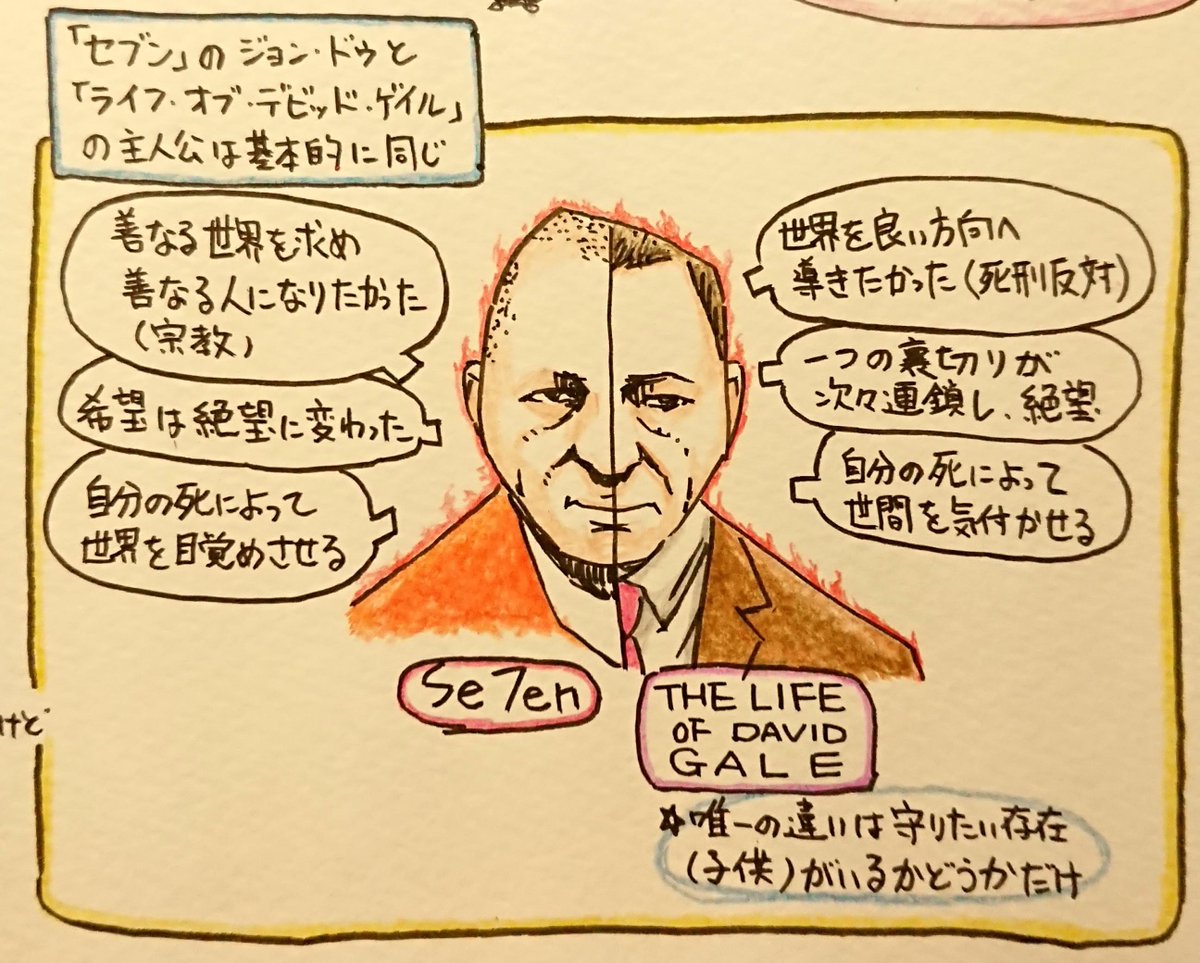 「セブン」の ジョン・ドゥと
「ライフ・オブ・デビッド・ゲイル」
の主人公は基本的に同じ
善なる世界を求め
善なる人になりたかった
(宗教)
希望は絶望に変わった
自分の死によって
世界を目覚めさせる
世界を良い方向へ
導きたかった(死刑反対)
一つの裏切りが
次々連鎖し、絶望
自分の死によって
世間を気付かせる
Se7en
THE LIFE
OF DAVID
GALE
けど
☆唯一の違いは守りたい存在
(子供)がいるかどうかだけ